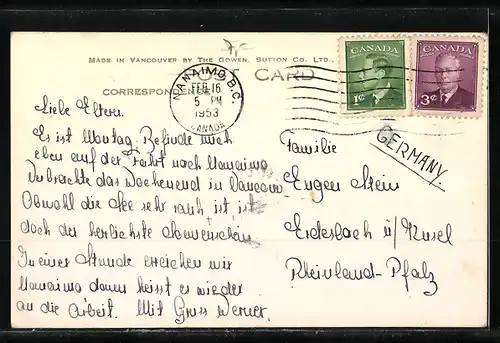 7,-
MADE IN VANCOUVER BY THE GOWEN, SUTTON CO. LTD.,
POST CARD
CORRESPONDENCE
NANAIMO B.C.
FEB 16
5 PM
1953
CANADA
CANADA
1¢
CANADA
3¢
Liebe Eltern.
Es ist Montag. Befinde mich
eben auf der Fahrt nach Nanaimo
Verbrachte das Wochenend in Vancouv
Obwohl die See sehr rauh ist, ist
doch der herrlichste Sonnenschein
In einer Stunde erreichen wir
Nanaimo dann heisst es wieder
an die Arbeit. Mit Gruss Werner.
GERMANY.
Familie
Eugen Stein
Erdesbach ü/Kusel
Rheinland-Pfalz